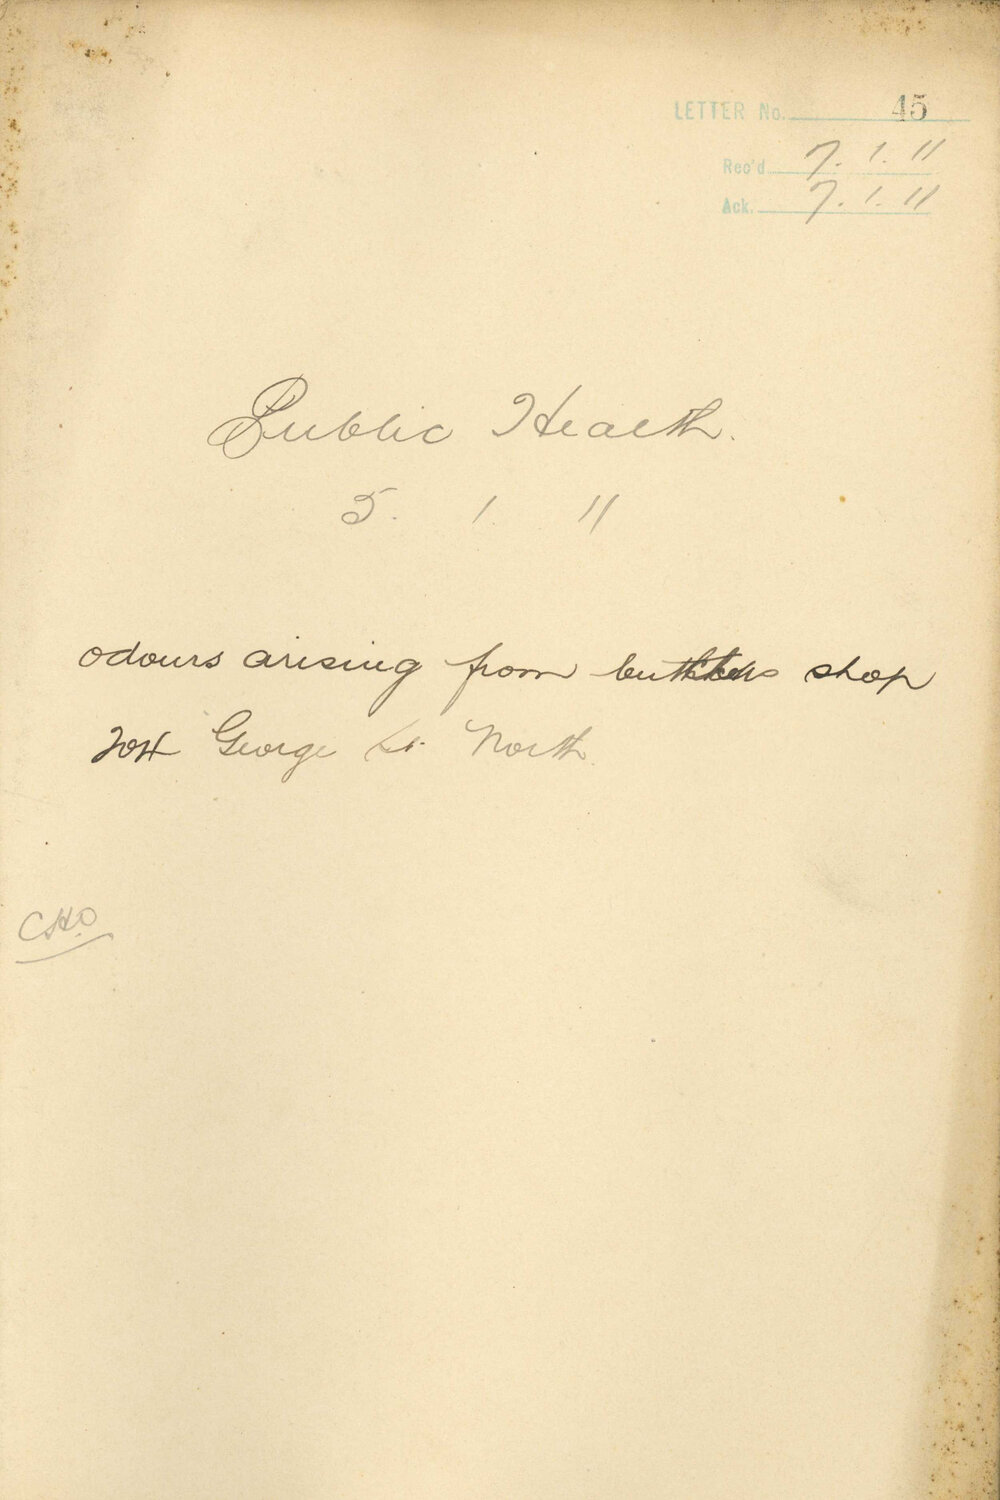 LETTER No. 45
Rec'd 7. 1. 11
Ack. 7. 1. 11
Public Health.
5. 1. 11
odours arising from butchers shop
204 George St. North
CHO